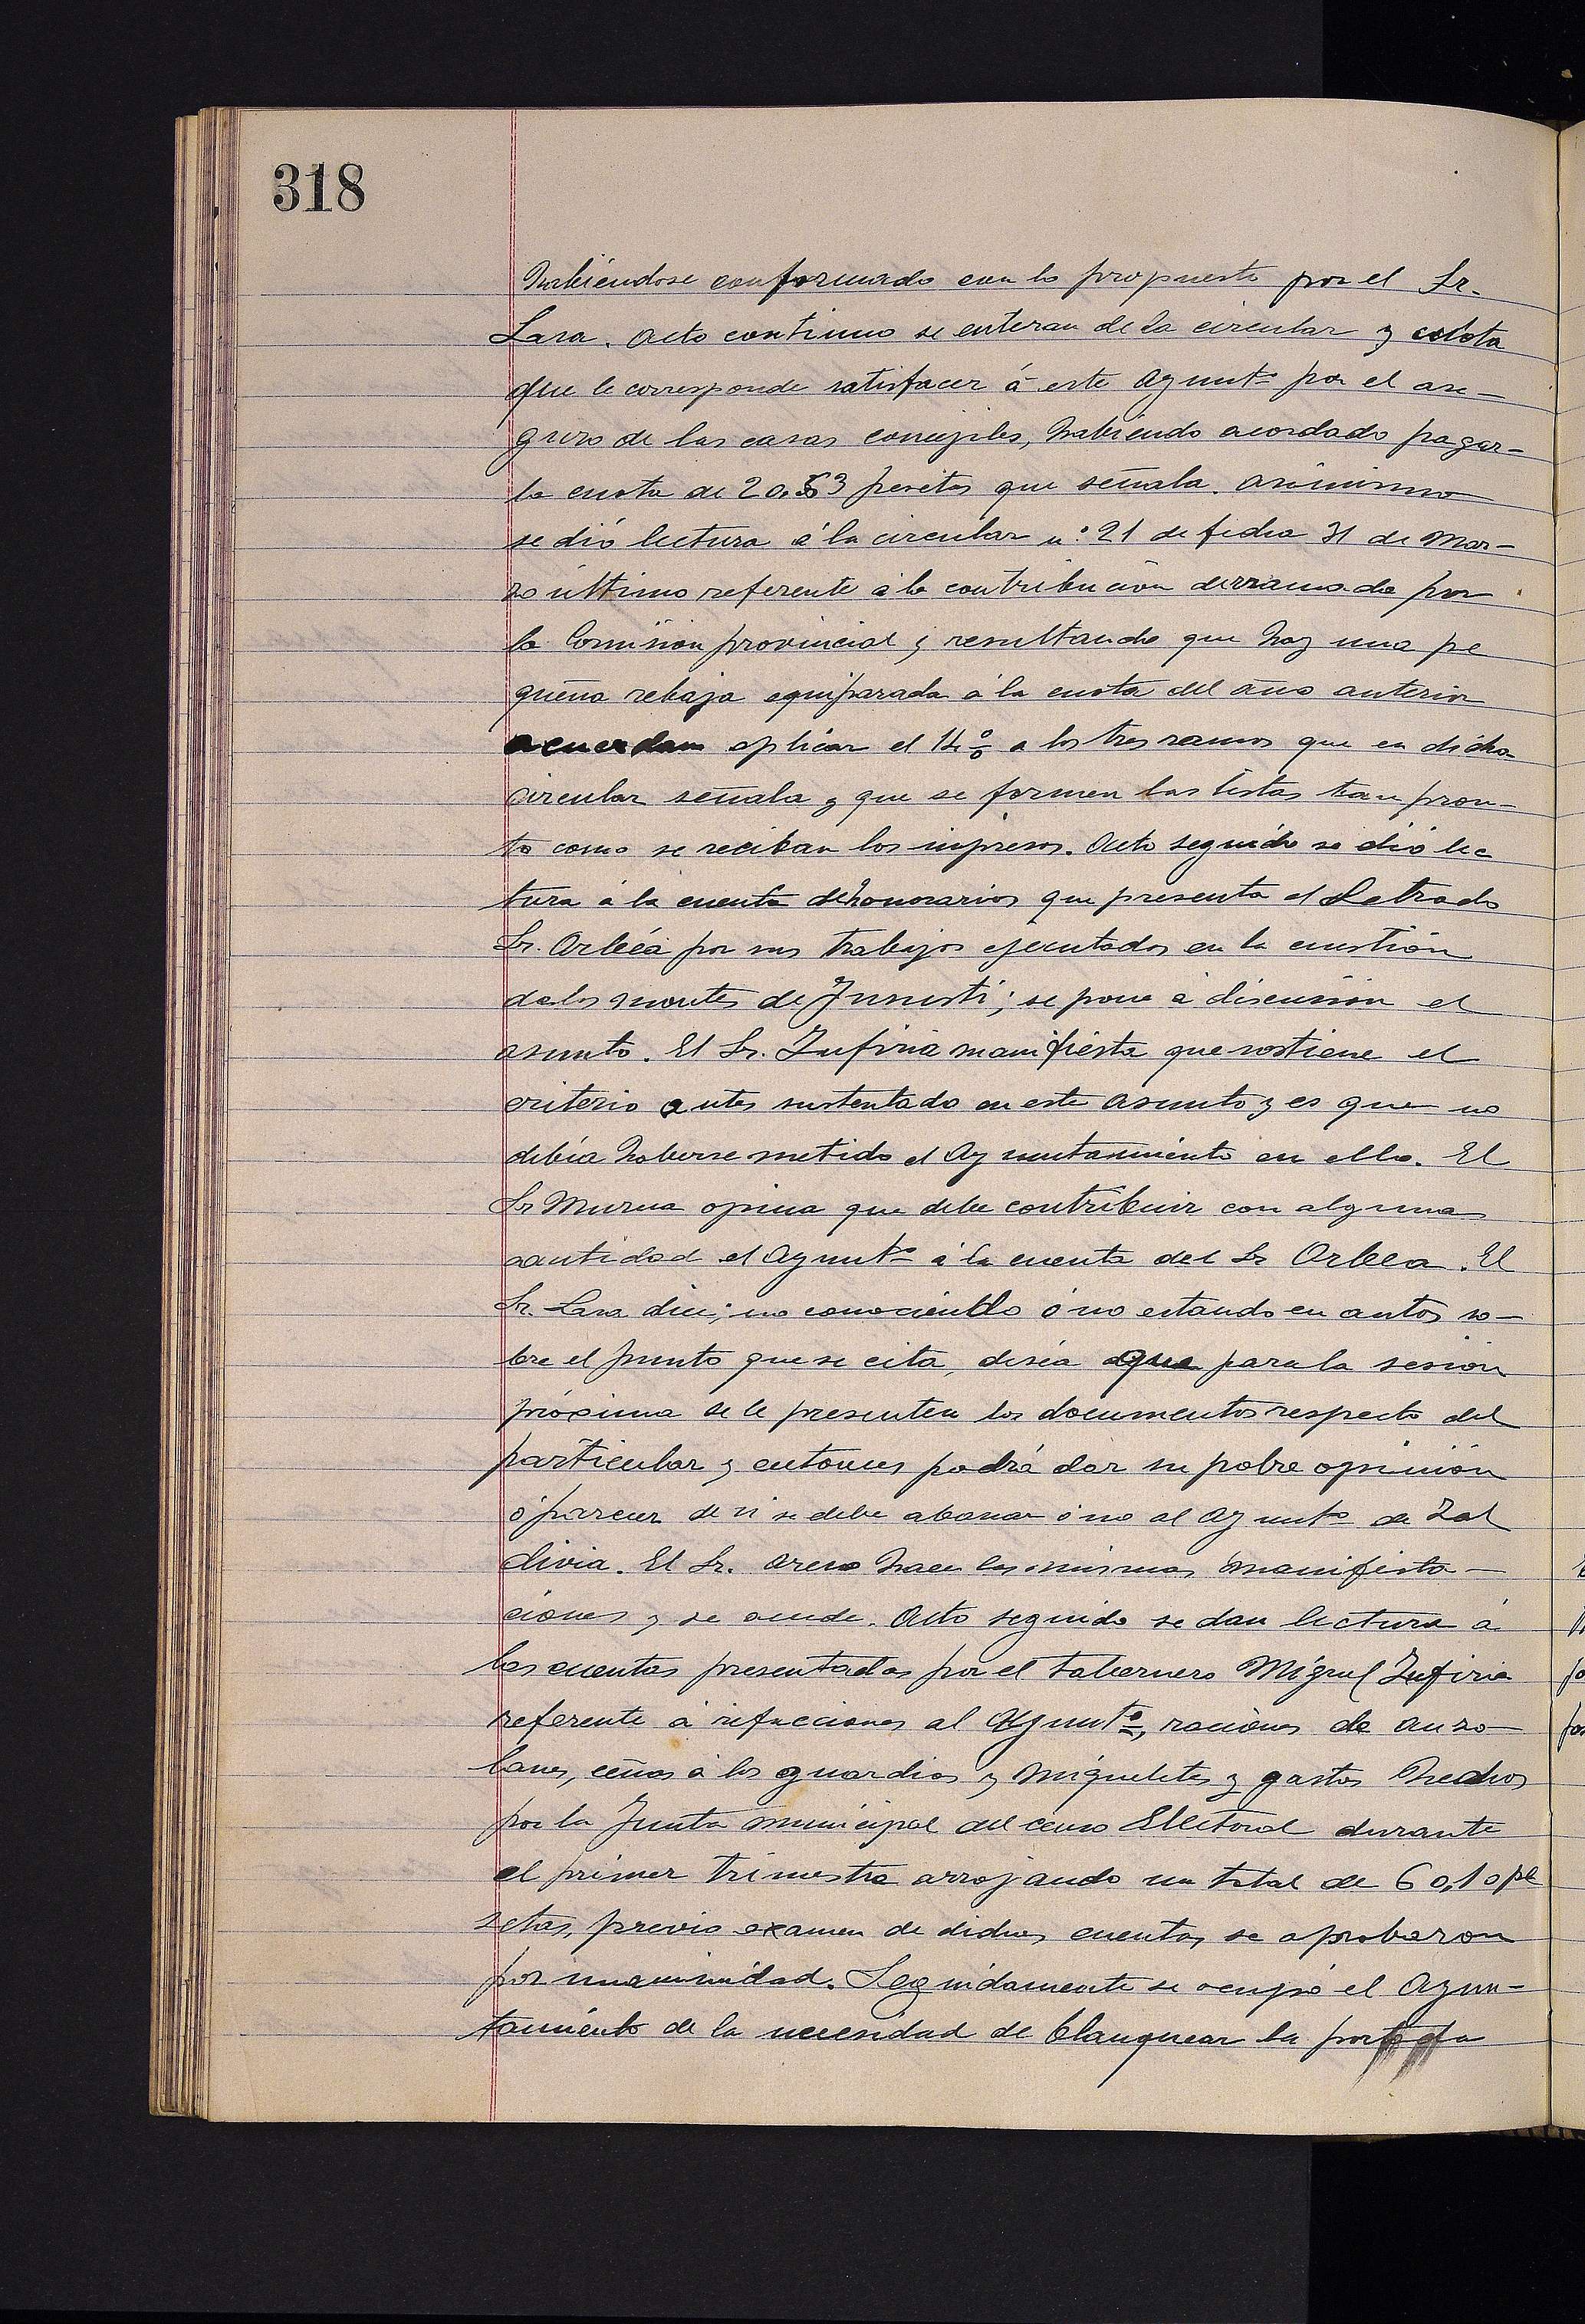 318
habiéndose conformado con lo propuesto por el Sr.
Lara. Acto continuo se enteran de la circular y
que le corresponde satisfacer á este Ayuntº por el ase-
guro de las casas concejiles, habiendo acordado pagar
la cuota de 20,53 pesetas que señala. Asimismo
se dió lectura á la circular nº 21 de fecha 31 de Mar-
zo último referente á la contribución derramada por
la Comisión provincial y resultando que hay una pe
queña rebaja equiparada á la cuota del año anterior
acuerdan aplicar el 14 % a los tres ramos que en dicha
circular señala y que se formen las listas tan pron-
to como se reciban los impresos. Acto seguido se dió lec
tura á la cuenta de honorarios que presenta el Letrado
Sr. Orbéa por sus trabajos ejecutados en la cuestión
de los montes de ; se pone á discusión el
asunto. El Sr. Zufiria manifiesta que sostiene el
criterio antes sustentado en este asunto y es que no
debía haberse metido el Ayuntamiento en ello. El
Sr Murua opina que debe contribuir con alguna
cantidad el Ayuntº á la cuenta del Sr Orbea. El
Sr. Lara dice; no conociendo ó no estando en autos so-
bre el punto que se cita, deséa que para la sesión
próxima se le presenten los documentos respecto del
particular y entonces podrá dar su pobre opinión
ó parecer de si se debe abonar ó no al Ayuntº de Zal
divia. El Sr. hace las mismas manifesta-
ciones y se acuerde. Acto seguido se dan lectura á
las cuentas presentadas por el tabernero Miguel Zufiria
referente á refacciones al Ayuntº, raciones de auzo-
lanes, cenas á los guardias y migueletes y gastos hechos
por la Junta municipal del censo Electoral durante
el primer trimestre arrojando un total de 60,10 pe
setas, previo examen de dichas cuentas se aprobaron
por unanimidad. Seguidamente se ocupó el Ayun-
tamiento de la necesidad de blanquear la portada